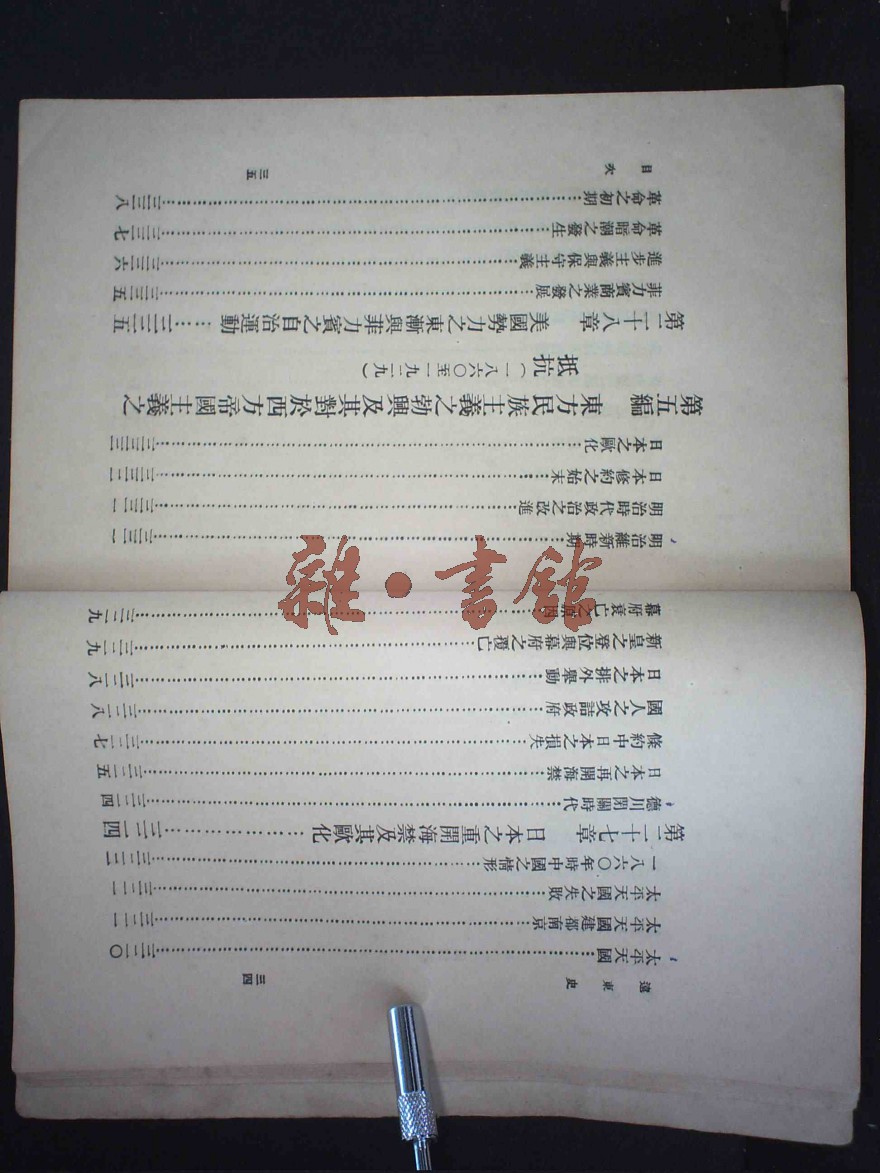 遠東史
三四
太平天國…………三二〇
太平天國建都南京…………三二一
太平天國之失敗…………三二一
一八六〇年時中國之情形…………三二二
第二十七章　日本之重開海禁及其歐化…………三二四
德川閉關時代…………三二四
日本之再開海禁…………三二五
條約中日本之損失…………三二七
國人之攻詰政府…………三二八
日本之排外舉動…………三二八
新皇之登位與幕府之覆亡…………三二九
幕府衰亡之原因…………三二九
明治維新時期…………三三一
明治時代政治之改進…………三三一
日本修約之始末…………三三二
日本之歐化…………三三三
第五編　東方民族主義之勃興及其對於西方帝國主義之
抵抗（一八六〇至一九二九）
第二十八章　美國勢力之東漸與菲力賓之自治運動……三三五
菲力賓商業之發展…………三三五
進步主義與保守主義…………三三六
革命暗潮之發生…………三三七
革命之初期…………三三八
目次
三五
雜·書館